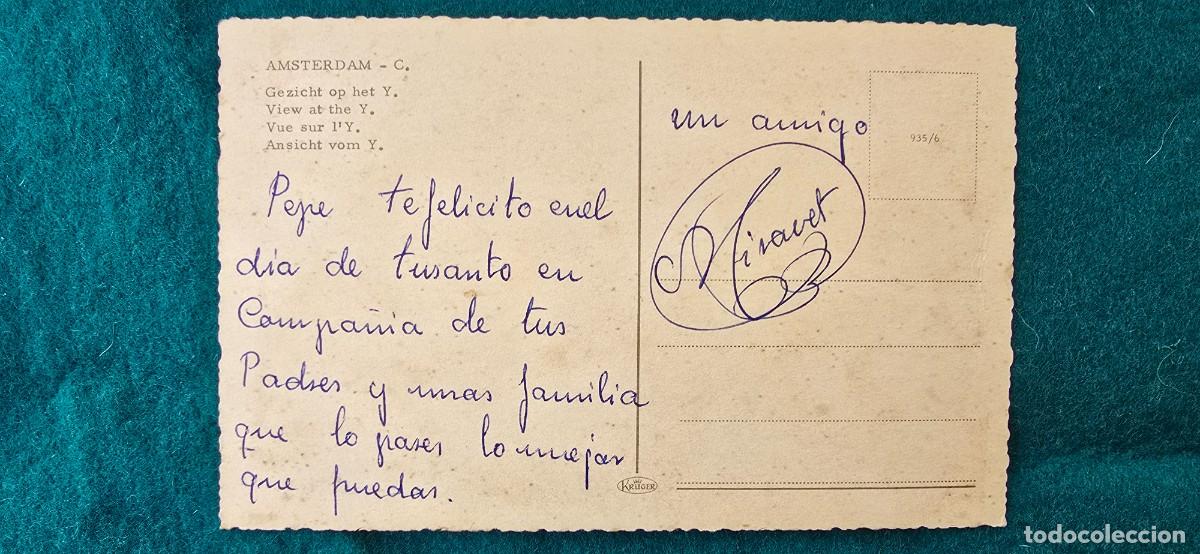 AMSTERDAM - C.
Gezicht op het Y.
View at the Y.
Vue sur l'Y.
Ansicht vom Y.
Pepe te felicito enel
dia de tusanto en
Compañia de tus
Padres y unas familia
que lo pases lo mejor
que puedas.
un amigo
Miravet
935/6
KRÜGER
todocoleccion